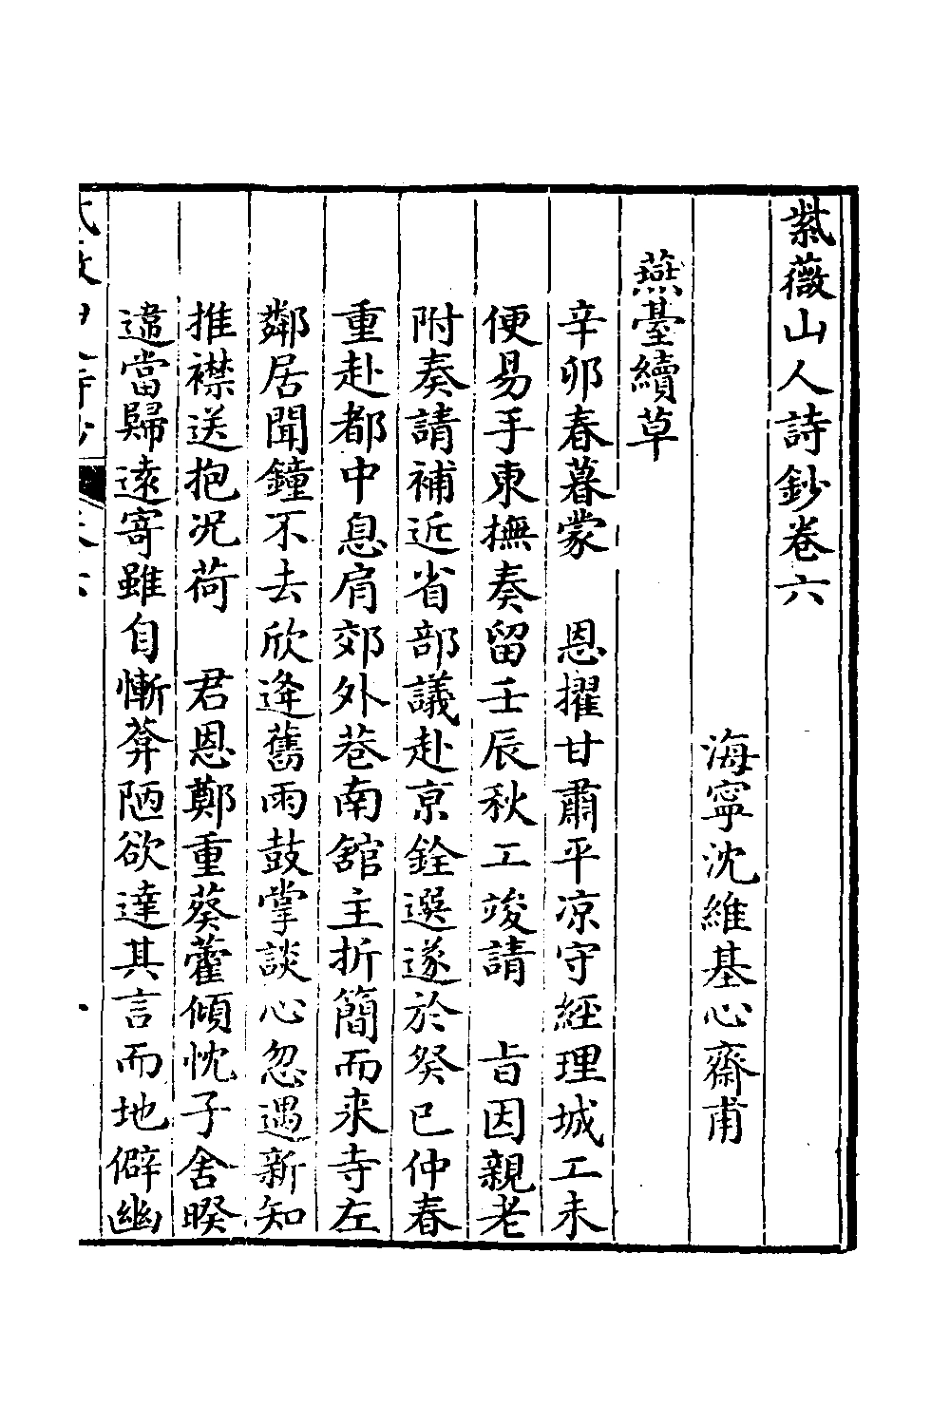 紫薇山人詩鈔卷六
海寧沈維基心齋甫
燕臺續草
辛卯春暮蒙　恩擢甘肅平凉守經理城工未
便易手東撫奏留壬辰秋工竣請　旨因親老
附奏請補近省部議赴京銓選遂於癸巳仲春
重赴都中息肩郊外巷南舘主折簡而来寺左
鄰居聞鐘不去欣逄舊雨鼓掌談心忽遇新知
推襟送抱况荷　君恩鄭重葵藿傾忱子舍暌
違當歸遠寄雖自慚葑陋欲達其言而地僻幽